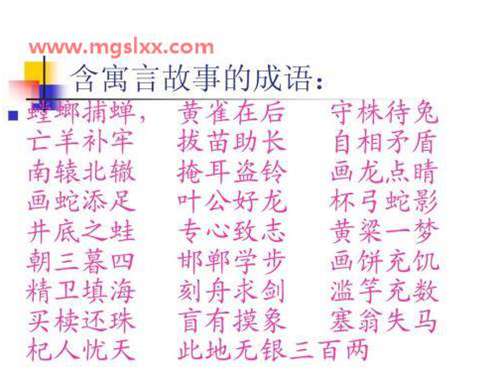 www.mgslxx.com
含寓言故事的成语：
螳螂捕蝉， 黄雀在后 守株待兔
亡羊补牢 拔苗助长 自相矛盾
南辕北辙 掩耳盗铃 画龙点睛
画蛇添足 叶公好龙 杯弓蛇影
井底之蛙 专心致志 黄粱一梦
朝三暮四 邯郸学步 画饼充饥
精卫填海 刻舟求剑 滥竽充数
买椟还珠 盲有摸象 塞翁失马
杞人忧天 此地无银三百两